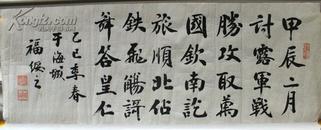 甲辰二月
討露軍戰
勝攻取萬
國欽南訖
旅順北佔
鉄飛觴謌
舞答皇仁
乙巳季春
于海城
福綏之